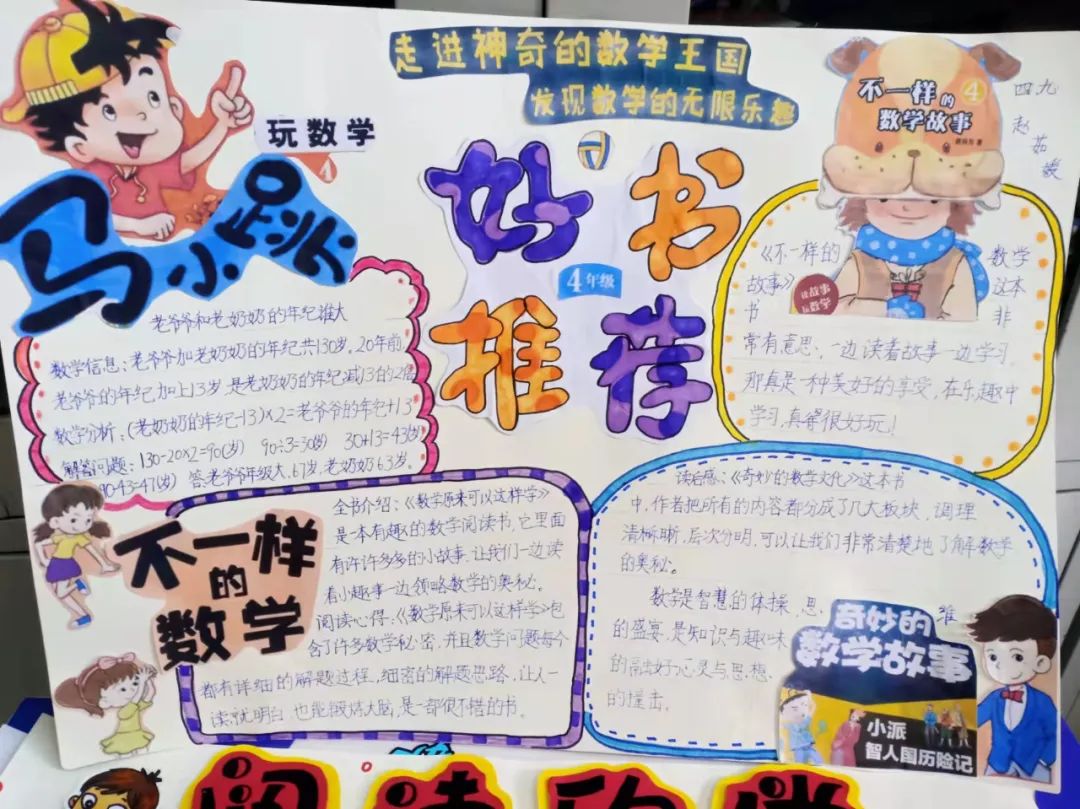 走进神奇的数学王国
发现数学的无限乐趣
玩数学
4
马小跳
好书
推荐
4年级
不一样的
4
数学故事
四九
赵茹媛
老爷爷和老奶奶的年纪谁大
数学信息:老爷爷加老奶奶的年纪共130岁。20年前,
老爷爷的年纪加上13岁是老奶奶的年纪减13的2倍
数学分析:(老奶奶的年纪-13)×2=老爷爷的年纪+13
解答问题:130-20×2=90(岁) 90÷3=30(岁) 30+13=43岁
90-43=47(岁) 答:老爷爷年级大,67岁,老奶奶63岁。
《不一样的数学
故事》这本
读故事
玩数学
书非
常有意思、一边读着故事一边学习。
那真是一种美好的享受,在乐趣中
学习,真得很好玩!
不一样
的
数学
全书介绍:《数学原来可以这样学》
是一本有趣的数字阅读书,它里面
有许许多多的小故事,让我们一边读
着小趣事一边领略数学的奥秘。
阅读心得:《数学原来可以这样学》包
含了许多数学秘密,并且数学问题每个
都有详细的解题过程,细密的解题思路,让人一
读就明白,也能锻炼大脑,是一部很不错的书。
读后感:《奇妙的数学文化》这本书
中,作者把所有的内容都分成了几大板块,调理
清晰晰,层次分明,可以让我们非常清楚地了解数学
的奥秘。
数学是智慧的体操,思维
的盛宴,是知识与趣味
的融好心灵与思想
的撞击。
奇妙的
数学故事
小派
智人国历险记